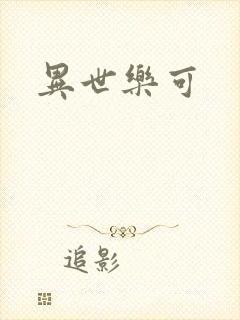 異世樂可
追影